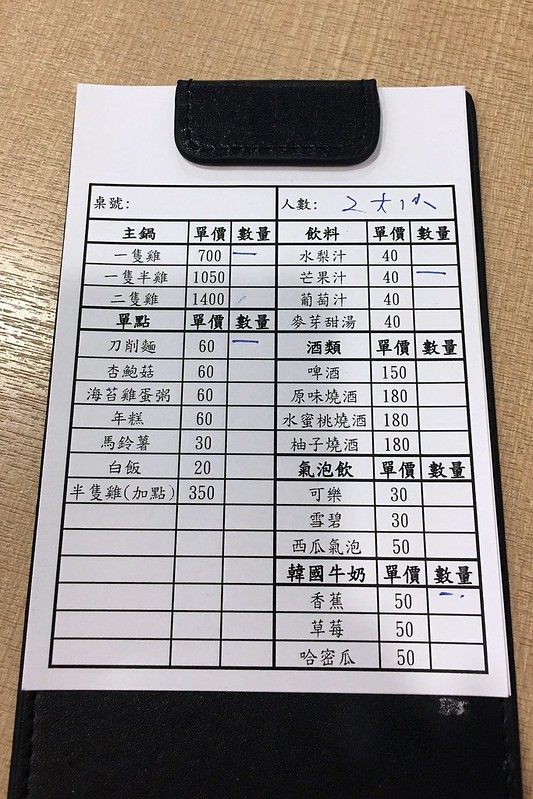 桌號: 人數: 2大1小
主鍋 單價 數量 飲料 單價 數量
一隻雞 700 一 水梨汁 40
一隻半雞 1050 芒果汁 40 一
二隻雞 1400 葡萄汁 40
單點 單價 數量 麥芽甜湯 40
刀削麵 60 一 酒類 單價 數量
杏鮑菇 60 啤酒 150
海苔雞蛋粥 60 原味燒酒 180
年糕 60 水蜜桃燒酒 180
馬鈴薯 30 柚子燒酒 180
白飯 20 氣泡飲 單價 數量
半隻雞(加點) 350 可樂 30
雪碧 30
西瓜氣泡 50
韓國牛奶 單價 數量
香蕉 50 一
草莓 50
哈密瓜 50